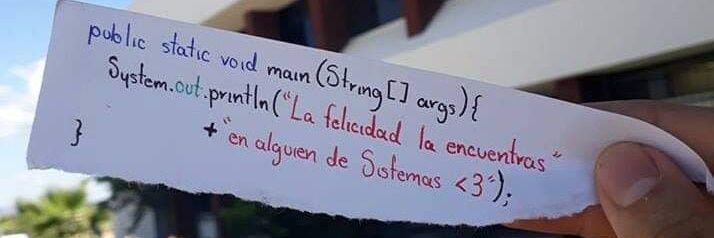 public static void main (String [] args) {
System.out.println ("La felicidad la encuentras"
+ "en alguien de Sistemas <3");
}